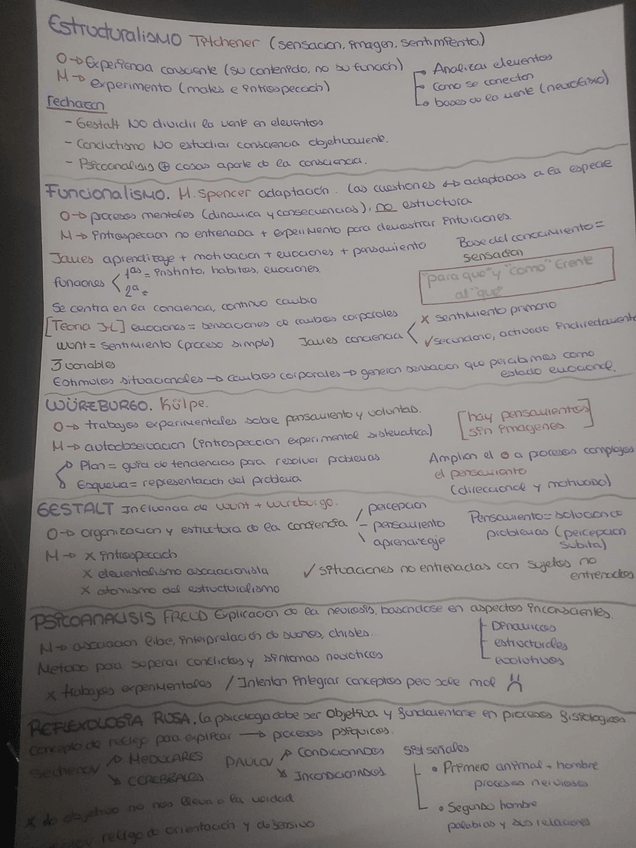 Estructuralismo Titchener (sensacion, imagen, sentimiento)
O → Experiencia consciente (su contenido, no su funcion)
M → experimento (males e introspeccion)
Analizar elementos
Como se conectan
bases de la mente (neurofisio)
rechazan
- Gestalt NO dividir la mente en elementos
- Conductismo NO estudiar consciencia objetivamente.
- Psicoanalisis ⊕ cosas aparte de la consciencia.
Funcionalismo. H. Spencer adaptacion. Las cuestiones ↔ adaptadas a la especie
O → procesos mentales (dinamica y consecuencias), no estructura
M → introspeccion no entrenada + experimento para demostrar intuiciones
James aprendizaje + motivacion + emociones + pensamiento
Base del conocimiento = sensacion
Funciones
1as = instinto, habitos, emociones
2as
"para que" y "como" frente
al "que"
Se centra en la conciencia, continuo cambio
[Teoria J-L] emociones = sensaciones de cambios corporales
Wunt = sentimiento (proceso simple)
James conciencia
x sentimiento primario
✓ secundario, activado indirectamente
3 variables
Estimulos situacionales → cambios corporales → generan sensacion que percibimos como
estado emocional.
WÜRZBURGO. Külpe.
O → trabajos experimentales sobre pensamiento y voluntad.
M → autoobservacion (introspeccion experimental sistematica)
[hay pensamientos
sin imagenes]
Plan = guia de tendencias para resolver problemas
Esquema = representacion del problema
Amplian el O a procesos complejos
el pensamiento
(direccional y motivado)
GESTALT Influencia de Wunt + wurzburgo.
O → organizacion y estructura de la conciencia
percepcion
pensamiento
aprendizaje
Pensamiento = soluciona
problemas (percepcion
subita)
M → x introspeccion
x elementalismo asociacionista
x atomismo del estructuralismo
✓ situaciones no entrenadas con sujetos no
entrenados
PSICOANALISIS FREUD Explicacion de la neurosis, basandose en aspectos inconscientes.
M → asociacion libre, interpretacion de sueños, chistes.
Dinamicos
estructurales
evolutivos
Metodo para superar conflictos y sintomas neuroticos
x trabajos experimentales / Intentan integrar conceptos pero sale mal
REFLEXOLOGÍA RUSA. La psicologia debe ser objetiva y fundamentarse en procesos fisiologicos
Concepto de reflejo para explicar → procesos psiquicos.
Sechenov
MEDULARES
CEREBRALES
PAULOV
CONDICIONADOS
INCONDICIONADOS
Sist señales
• Primero animal + hombre
procesos nerviosos
• Segundo hombre
palabras y sus relaciones
x lo objetivo no nos lleva a la verdad
reflejo de orientacion y defensivo